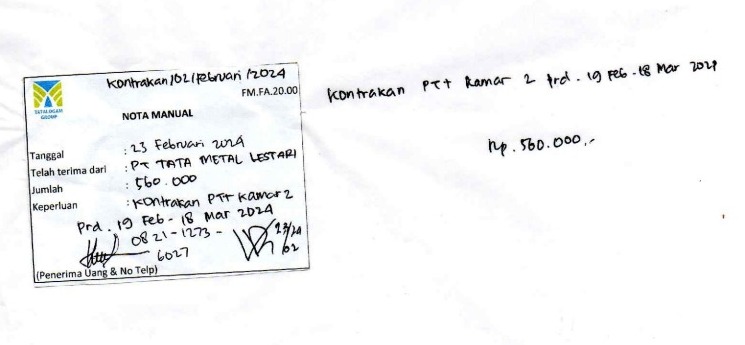 Kontrakan/02/Februari/2024
TATALOGAM
GROUP
FM.FA.20.00
NOTA MANUAL
Tanggal : 23 Februari 2024
Telah terima dari : PT TATA METAL LESTARI
Jumlah : 560.000
Keperluan : Kontrakan PTT Kamar 2
Prd. 19 Feb - 18 Mar 2024
0821-1273-
6027
23/24
02
(Penerima Uang & No Telp)
Kontrakan PTT Kamar 2 Prd. 19 Feb - 18 Mar 2024
Rp. 560.000.-